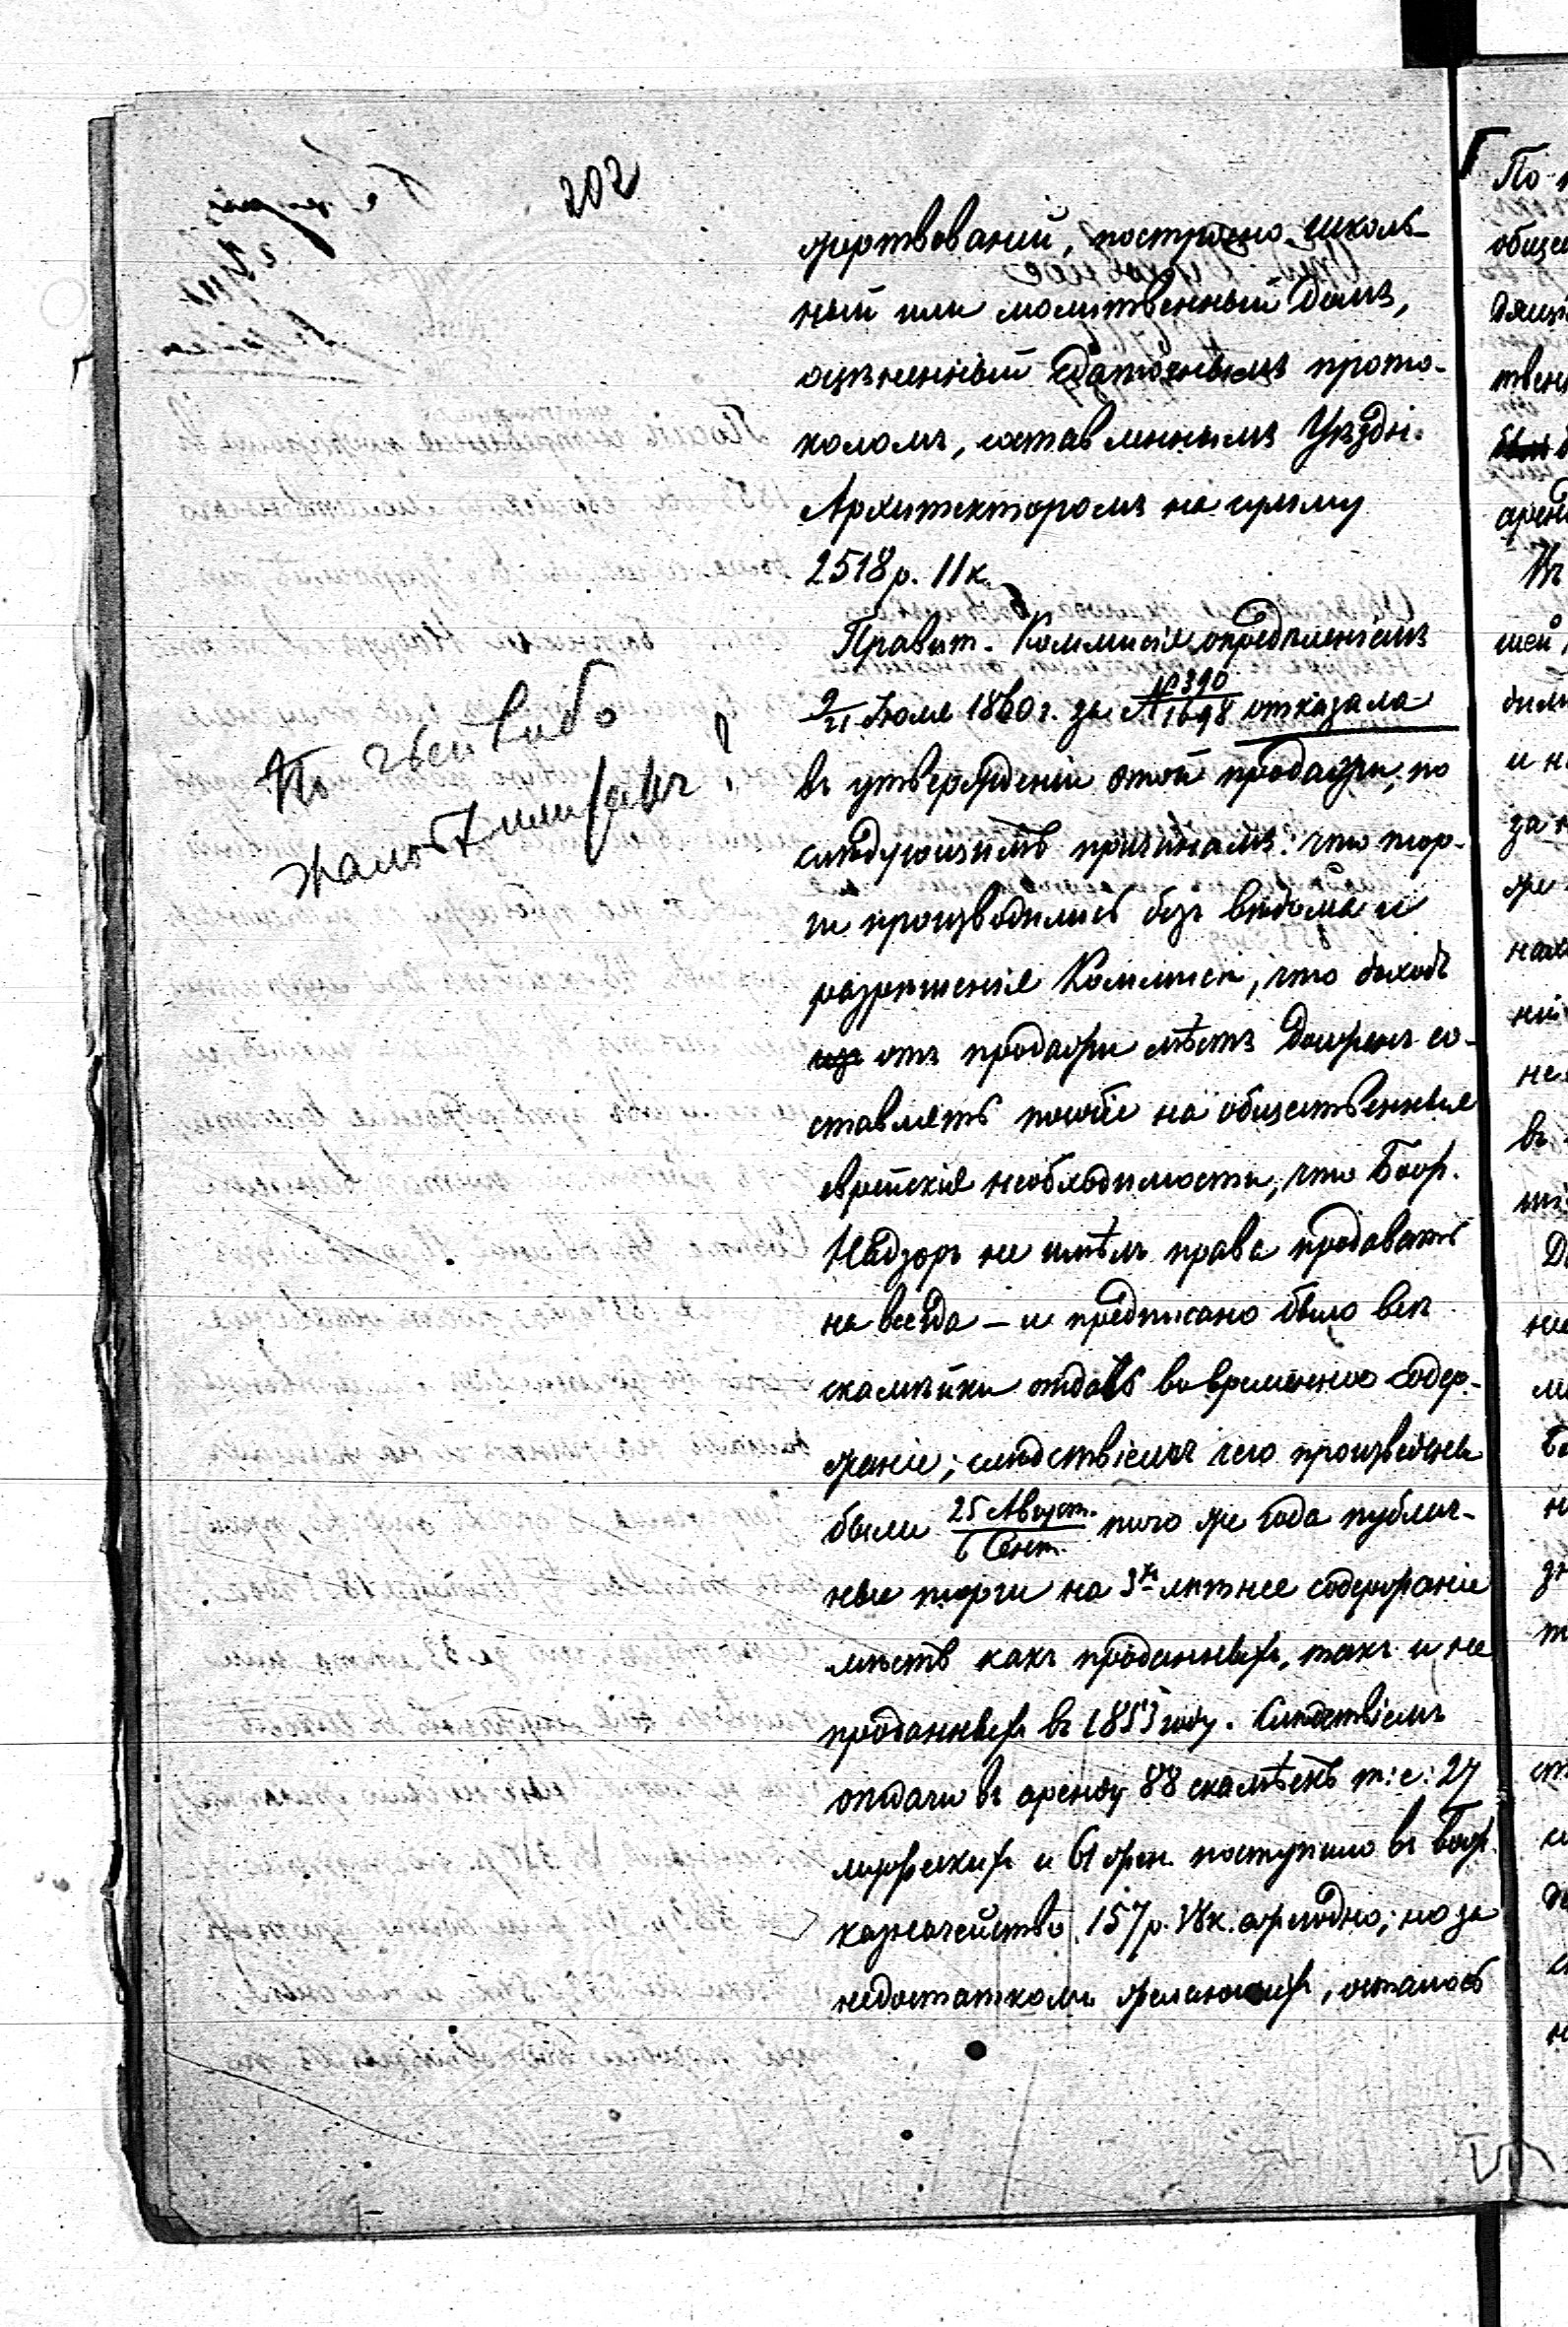 202
жертвованій, построено школь-
ный или молитвенный домъ,
оцѣненный сдаточнымъ прото-
коломъ, составленнымъ Уѣздн.
Архитекторомъ на сумму
2518 р. 11 к.
Правит. Коммисія опредѣленіемъ
9/21 Іюля 1860 г. за № 390/1698 отказала
въ утвержденіи этой продажи, по
слѣдующимъ причинамъ: что тор-
ги производились безъ вѣдома и
разрѣшенія Коммисіи, что доходъ
изъ отъ продажи мѣстъ долженъ со-
ставлять пособіе на общественныя
еврейскія необходимости, что Бож.
Надзоръ не имѣлъ права продавать
на всегда — и предписано было всѣ
скамѣйки отдать во временное содер-
жаніе; слѣдствіемъ чего произведены
были 25 Август./6 Сент. того же года публич-
ные торги на 3х лѣтнее содержаніе
мѣстъ какъ проданныхъ, такъ и не
проданныхъ въ 1853 году. Слѣдствіемъ
отдачи въ аренду 88 скамѣекъ т: е: 27
мужскихъ и 61 жен. поступило въ Бож.
казначейство 157 р. 78 к. ежегодно; но за
недостаткомъ желающихъ, осталось
По чьей либо
жалобѣ или